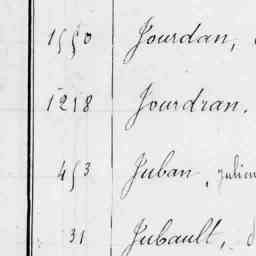 1550 Jourdan,
1218 Jourdran.
453 Juban, Julien
31 Jubault,